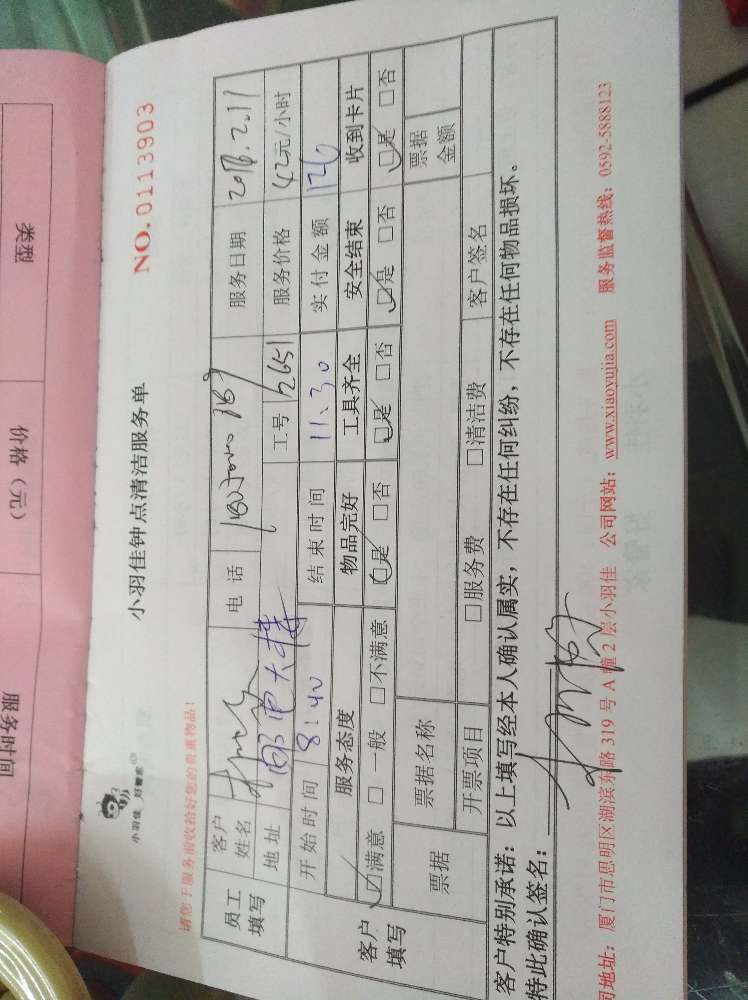 类型
价格（元）
服务时间
小羽佳
小羽佳钟点清洁服务单
NO.0113903
请您于服务前收拾好您的贵重物品！
员工填写
客户姓名
电话
服务日期 2018.2.11
地址 邮电大楼
工号 2651
服务价格 42元/小时
开始时间 8:40 结束时间 11:30 实付金额 126
客户填写
服务态度 物品完好 工具齐全 安全结束 收到卡片
☑满意 □一般 □不满意 ☑是 □否 ☑是 □否 ☑是 □否 ☑是 □否
票据
票据名称
票据金额
开票项目 □服务费 □清洁费 客户签名
客户特别承诺：以上填写经本人确认属实，不存在任何纠纷，不存在任何物品损坏。
特此确认签名：
司地址：厦门市思明区湖滨东路319号A幢2层小羽佳 公司网站：www.xiaoyujia.com 服务监督热线：0592-5888123